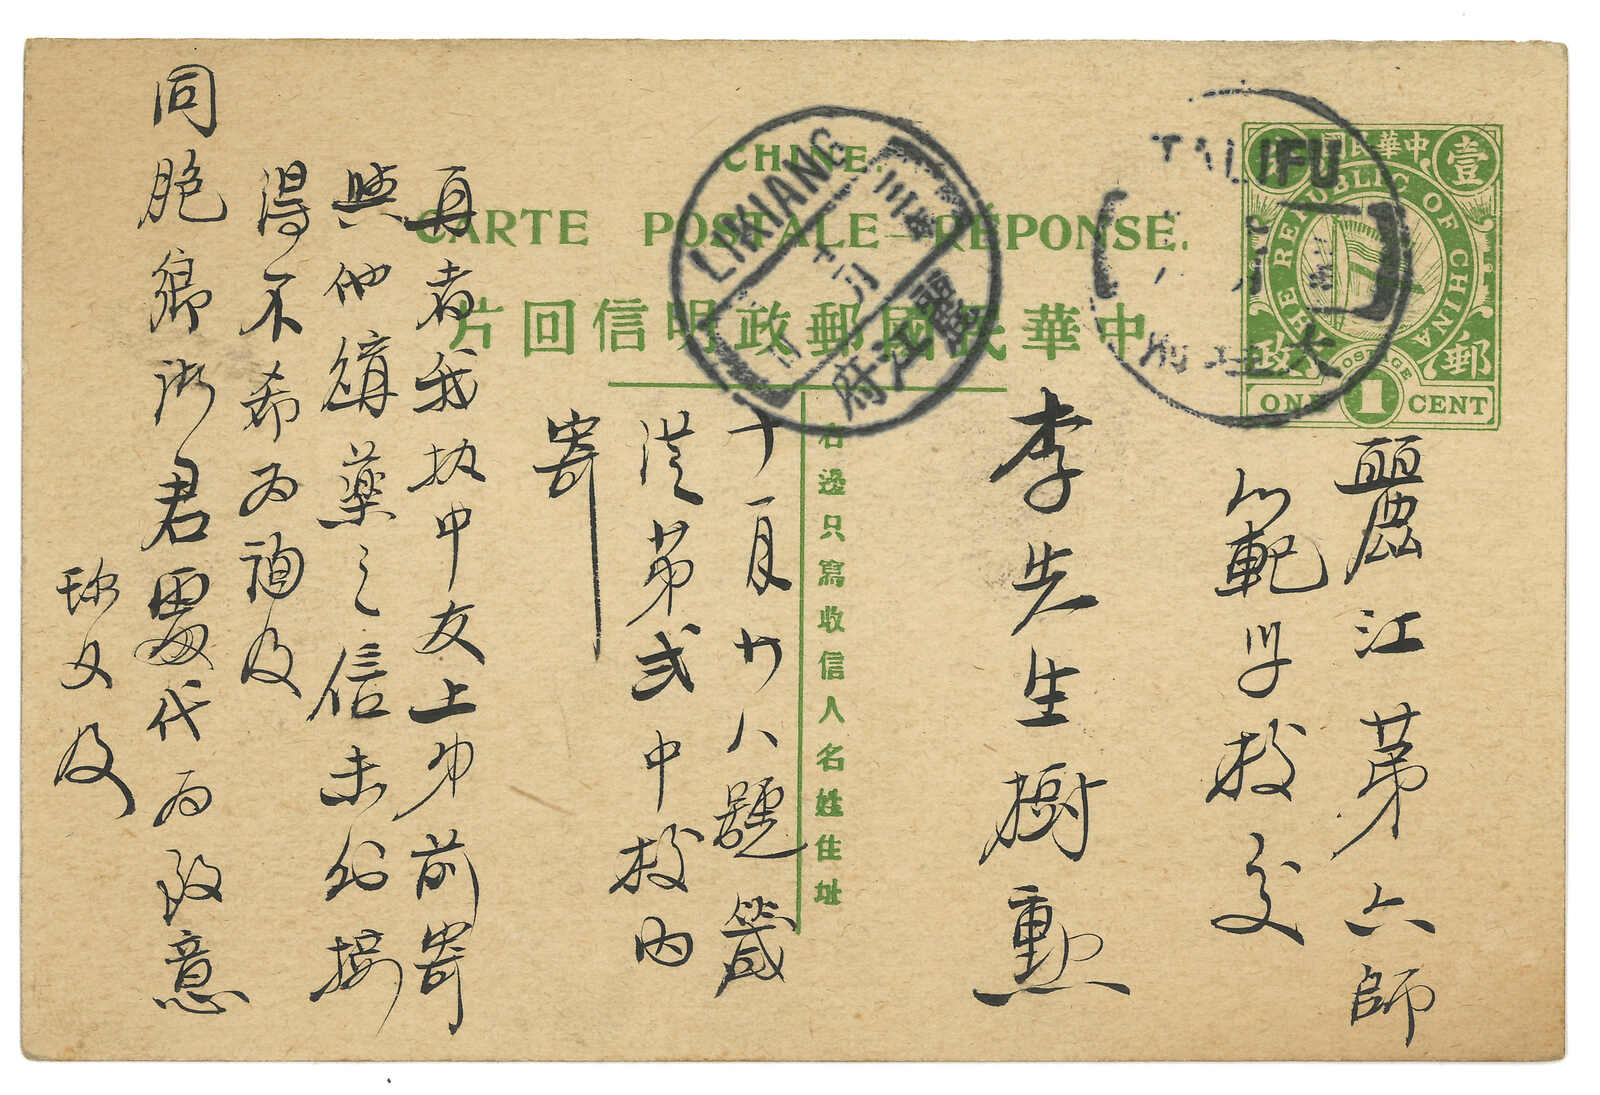 CHINE.
CARTE POSTALE—RÉPONSE.
中華民國郵政明信回片
右邊只寫收信人名姓住址
中華民國
壹
THE REPUBLIC OF CHINA
POSTAGE
郵政
ONE 1 CENT
TALIFU
大理府
LIKIANG
麗江府
麗江苐六師
範学校交
李先生樹勳
十一月廿八號
苐弍中校內
寄
再者我 中友上 前寄
與他 藥之信未 接
得不希為 及
同胞鄉 君 代為致意
又及